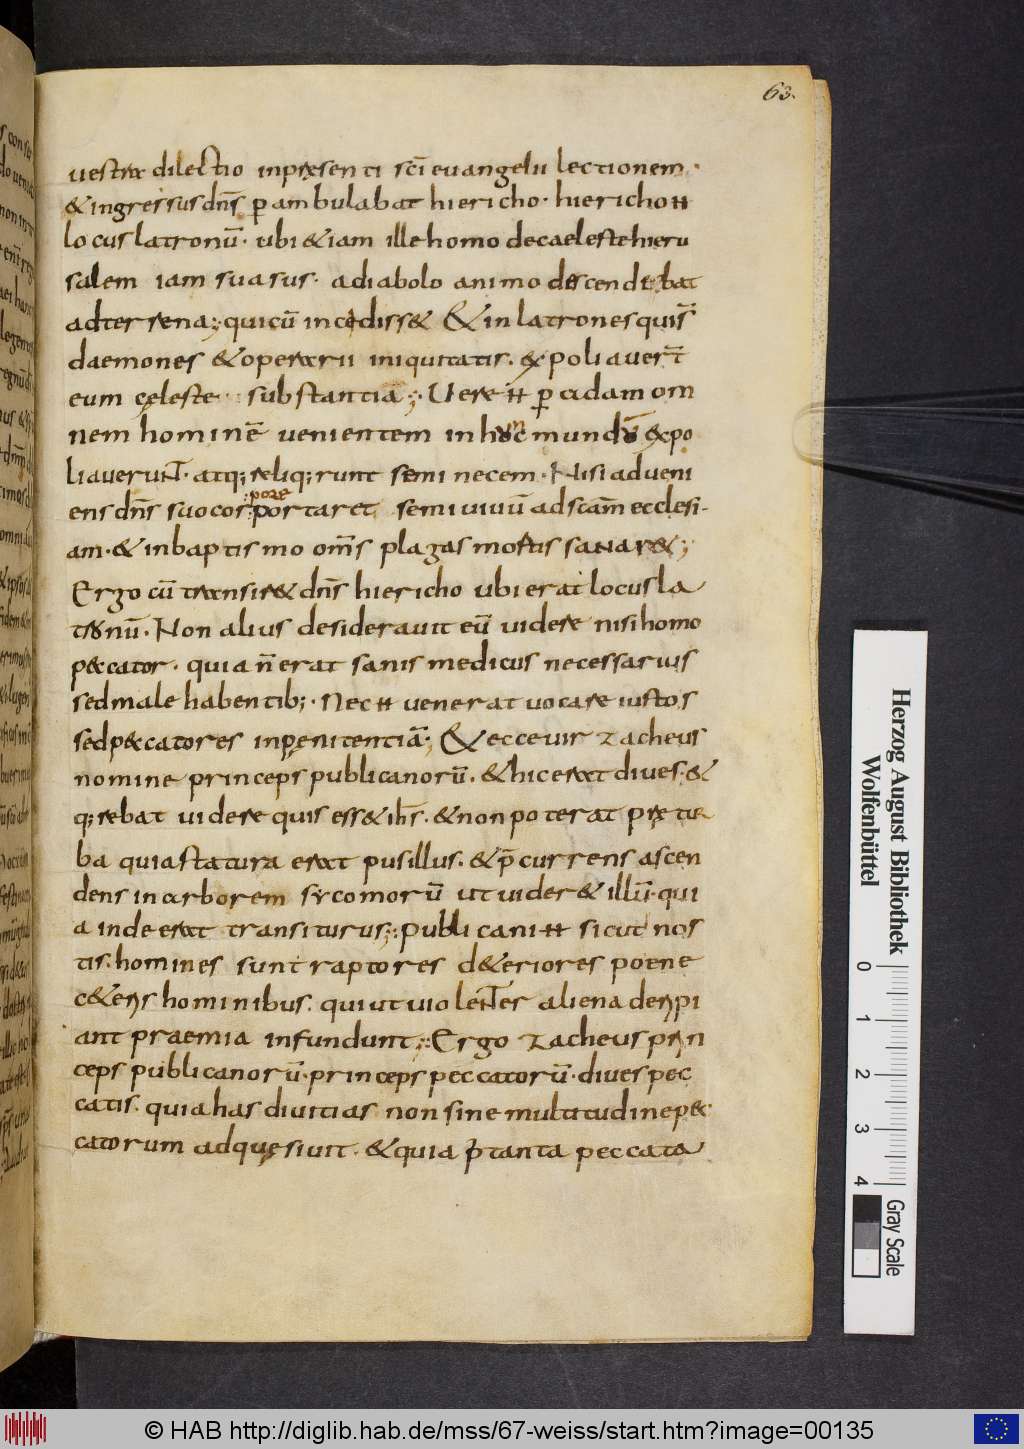 63.
uestra dilectio inpręsenti sc̄i euangelii lectionem.
& ingressus dn̄s ꝑambulabat hiericho. hiericho ⁊⁊
locus latronū. ubi & iam ille homo decaeleste hieru
salem iam suasus. adiabolo animo descendebat
adterrena; quicū incidiss& & inlatrones quis̄
daemones & operarii iniquitatis. expoliauer̄t
eum cęleste substantiā; Uere ⁊⁊ ꝑ adam om
nem hominē uenientem in hunc mundū expo
liauerunt. atq; reliq;runt seminecem. Nisi adueni
ens dn̄s suo corpore portaret semiuiuū ad scā̄m ecclesi-
am. & inbaptismo om̄s plagas mortis sanar&;
Ergo cū transir& dn̄s hiericho ubi erat locus la
tronū. Non alius desiderauit eū uidere nisi homo
peccator. quia n̄ erat sanis medicus necessarius
sed male habentib;. Nec ⁊⁊ uenerat uocare iustos
sed peccatores inpęnitentiā; & ecce uir zacheus
nomine princeps publicanorū. & hic erat diues. &
q;rebat uidere quis ess& ih̄s. & non poterat prę tur
ba quia statura erat pusillus. & p̄currens ascen
dens in arborem sycomorū ut uider& illū. qui
a inde erat transiturus; Publicani ⁊⁊ sicut nos
tis. homines sunt raptores d&eriores poene
c&eris hominibus. qui ut uiolenter aliena deripi
ant praemia infundunt; Ergo zacheus prin
ceps publicanorū. princeps peccatorū. diues pec
catis. quia has diuitias non sine multitudine pec
catorum adquęsiuit. & quia p̄ tanta peccata
Herzog August Bibliothek
Wolfenbüttel
0 1 2 3 4
Gray Scale
© HAB http://diglib.hab.de/mss/67-weiss/start.htm?image=00135